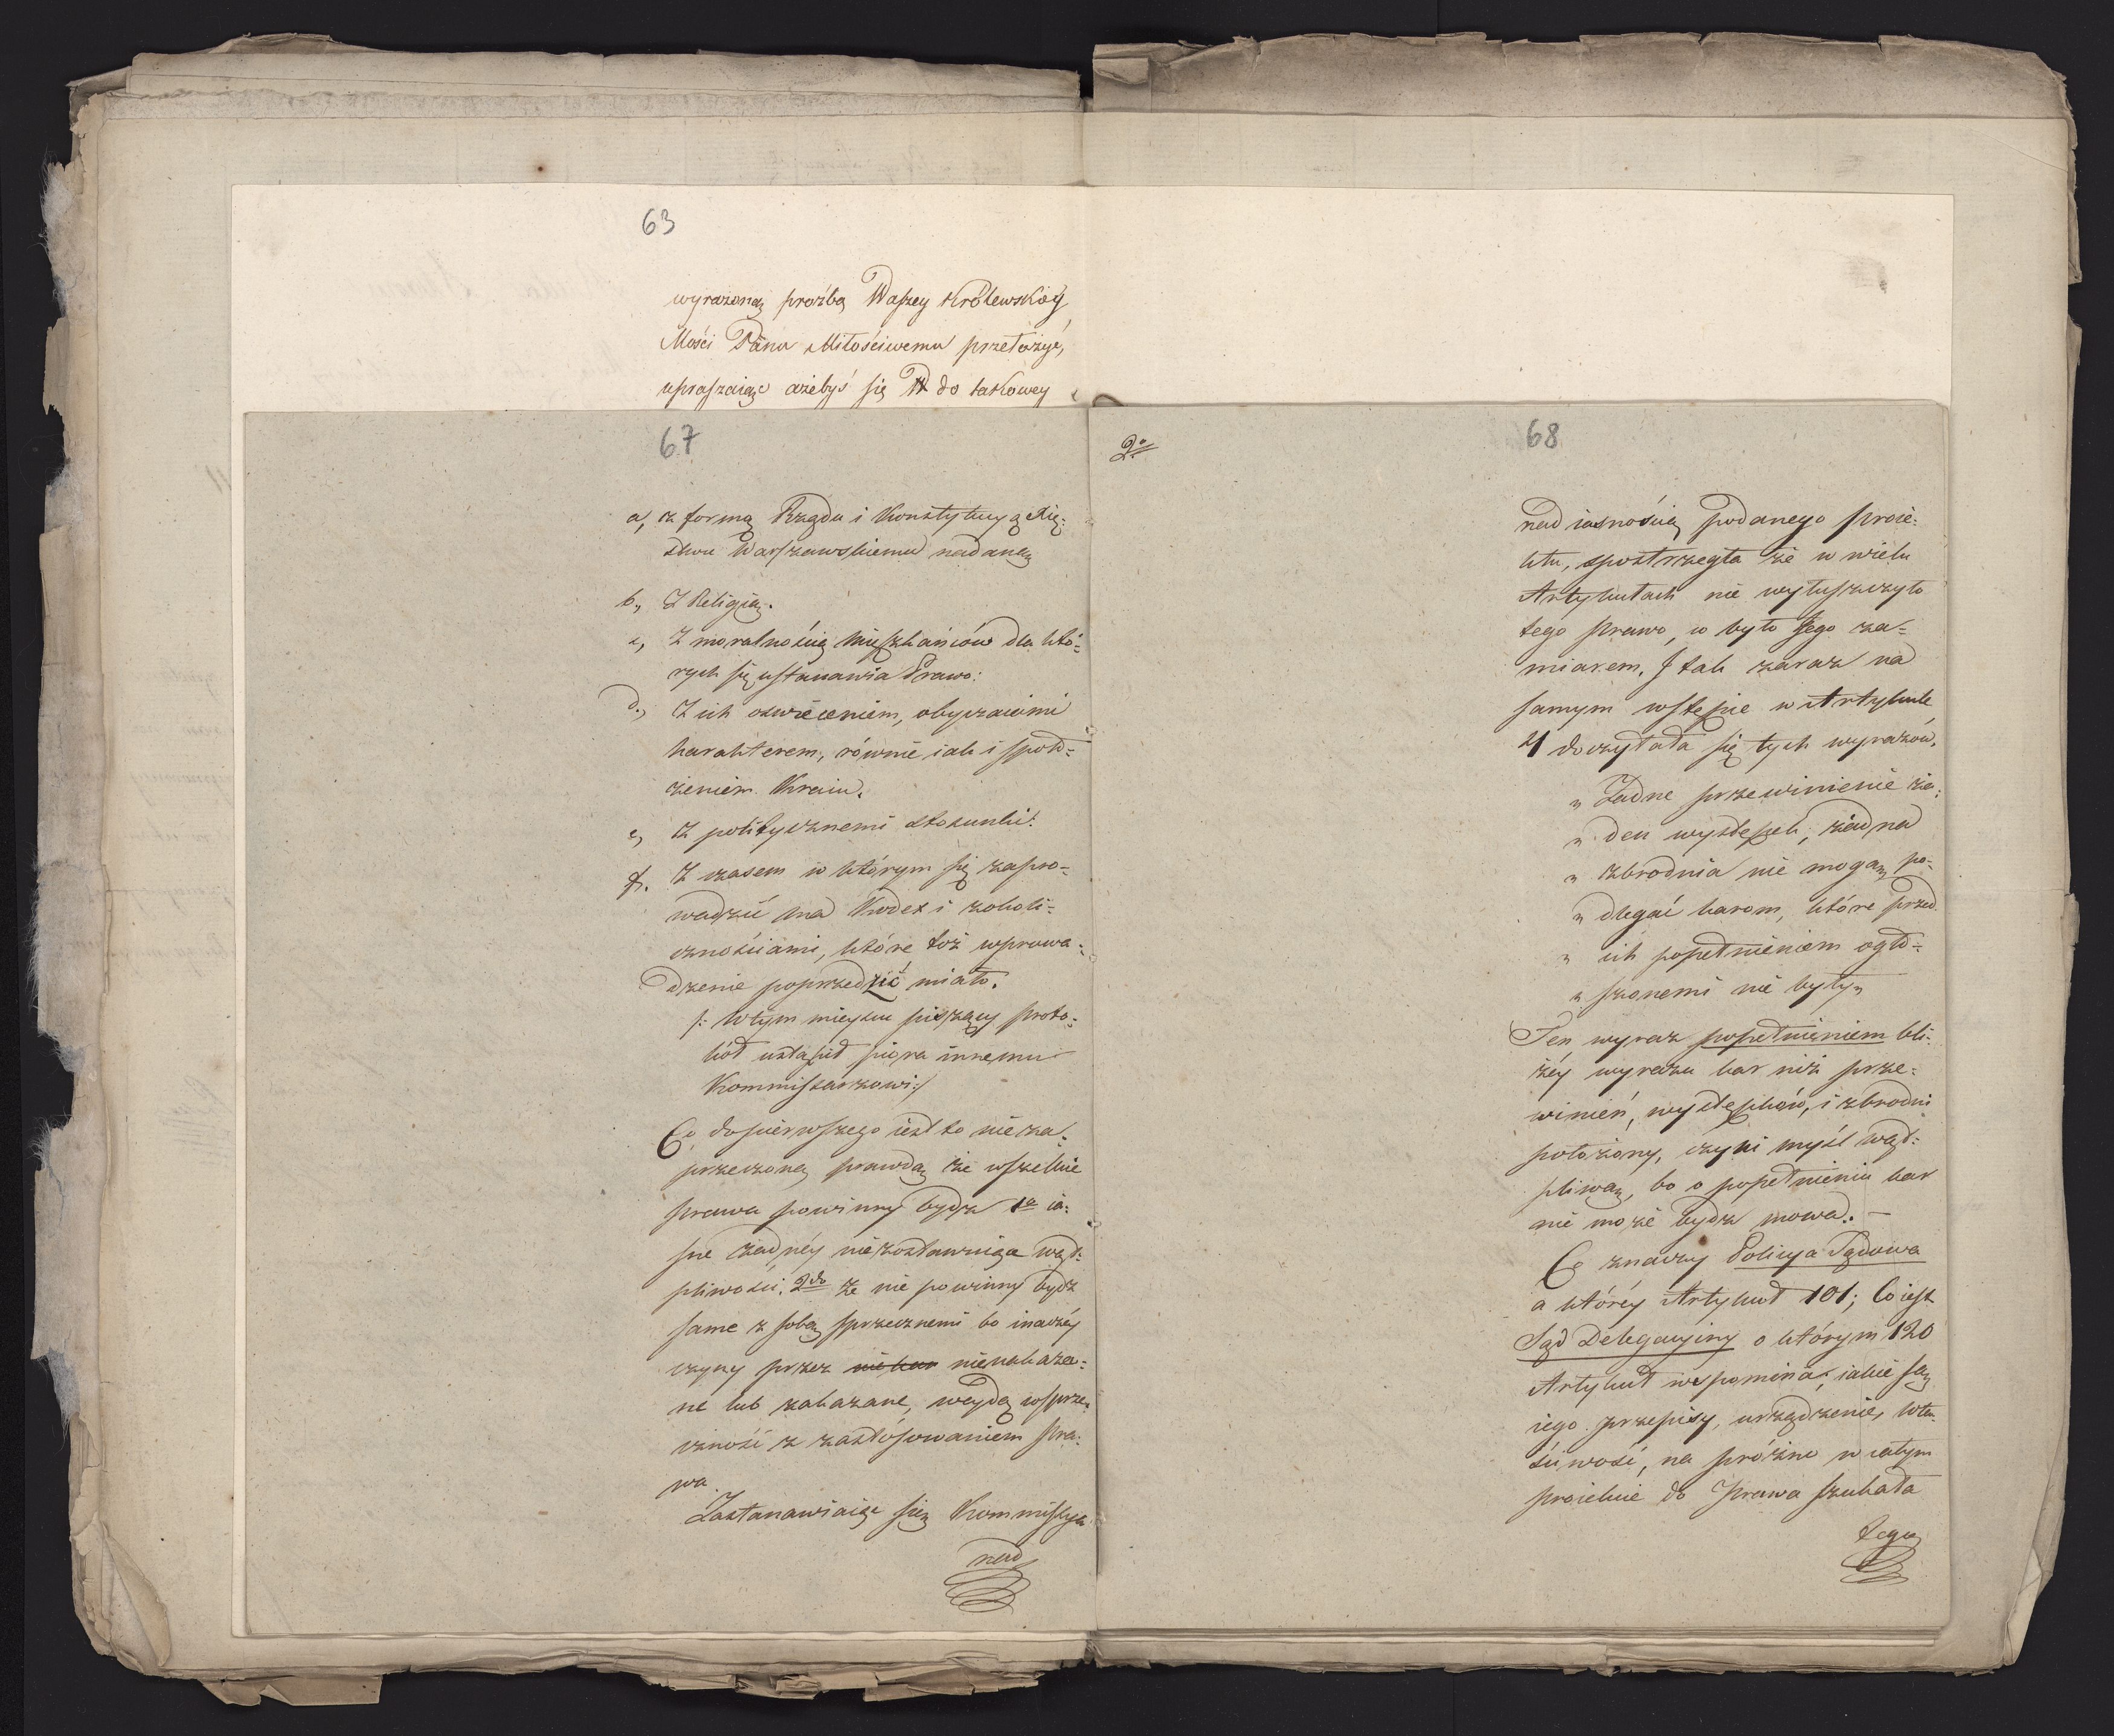 63
wyrażoną proźbą Waszey Królewskiey
Mości Pana Miłościwemu przełożyć,
upraszaiąc ażebyś się do takowey
67
a, z formą Rządu i Konstytucyą Xię-
stwu Warszawskiemu nadaną
b, Z Religią.
c, Z moralnością Mieszkańców dla któ-
rych się ustanawia Prawo:
d, Z ich oswieceniem, obyczaiami
karakterem, równie iak i społo-
żeniem Kraiu.
e, Z politycznemi stosunki.
f. Z czasem w którym się zapro-
wadzić ma Kodex i zokoli-
cznościami, które toż wprowa-
dzenie poprzedzić miało.
/: W tym mieyscu piszący proto-
kół ustąpił pióra innemu
Kommissarzowi:/
Co do pierwszego iest to nieza-
przeczoną prawdą że wszelkie
prawa powinny bydz 1º ia-
sne żadnéy niezostawuiąc wąt-
pliwości. 2do że nie powinny bydz
same z sobą sprzecznemi bo inaczéy
czyny przez nie kar nienakaza-
ne lub zakazane, weydą w sprze-
czność z zastósowaniem pra-
wa.
Zastanawiaiąc się Kommissya
nad
2º
68
nad iasnością podanego proie-
ktu, spostrzegła że w wielu
Artykułach nie wytuszczyło
tego prawo, co było Jego za-
miarem. I tak zaraz na
samym wstępie w Artykule
4 doczytała się tych wyrazów,
„ Żadne przewinienie ża-
„ den występek, żadna
„ zbrodnia nie mogą po-
„ dlegać karom, które przed
„ ich popełnieniem ogło-
„ szonemi nie były„
Ten wyraz popełnieniem bli-
żéy wyrazu kar niż prze-
winień, występków, i zbrodni
położony, czyni myśl wąt-
pliwą, bo o popełnieniu kar
nie może bydz mowa. —
Co znaczy Policya Sądowa
o któréy Artykuł 101; Co iest
Sąd Delegacyiny o którym 120
Artykuł wspomina, iakie są
iego przepisy, urządzenie, wła-
ściwość, na próżno w całym
proiekcie do Prawa szukała
tego